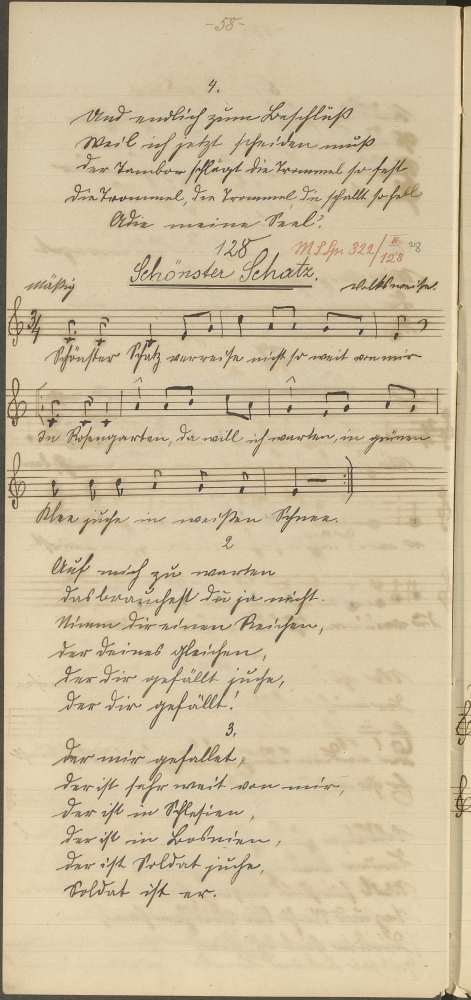 -58-
4.
Und endlich zum Beschluß
Weil ich jetzt scheiden muß
Der Tambor schlägt die Trommel so fest
Die Trommel, die Trommel, die schallt so hell
Adie meine Seel!
128
Schönster Schatz.
Mäßig
Volksweise.
3/4
Schönster Schatz verreise nicht so weit von mir
In Rosengarten, da will ich warten, in grünen
Klee juche in weißen Schnee.
2
Auf mich zu warten
das brauchest du ja nicht.
Nimm dir einen Reichen,
der deines gleichen,
der dir gefällt juche,
der dir gefällt!
3.
Der mir gefallet,
der ist sehr weit von mir,
der ist in Schlesien,
der ist in Bosnien,
der ist Soldat juche,
Soldat ist er.